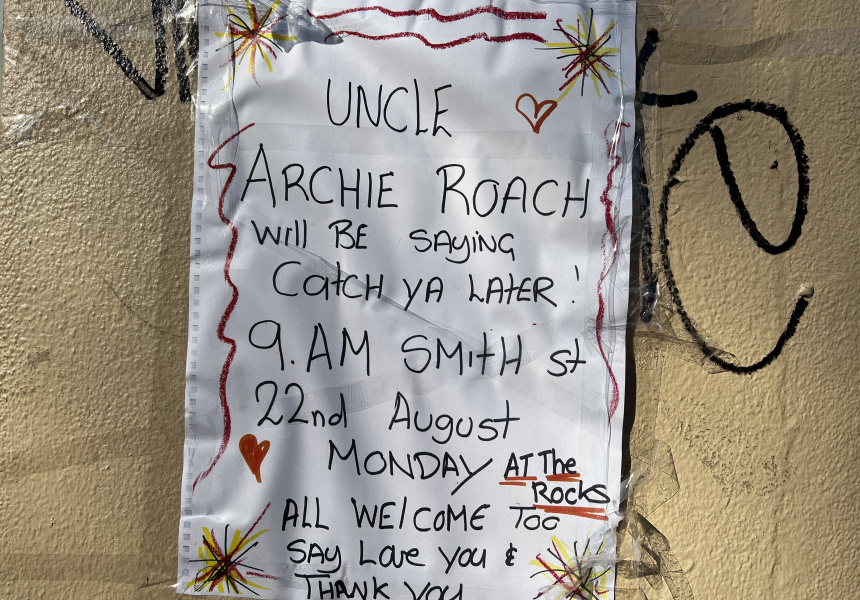 UNCLE
ARCHIE ROACH
Will BE SAYING
CatCH YA LATER!
9.AM SMitH st
22nd August
MONDAY AT The
Rocks
ALL WElCOME Too
SAY Love you &
THANK YOU